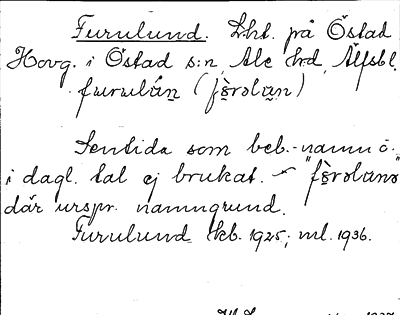 Furulund. Lht. på Östad
Hovg. i Östad s:n, Ale hd, Älfsbl.
furulán (fə̀rəlan)
Sentida som beb.-namn o.
i dagl. tal ej brukat. "fə̀rəlana
där urspr. namngrund.
Furulund kb. 1925; ml. 1936.